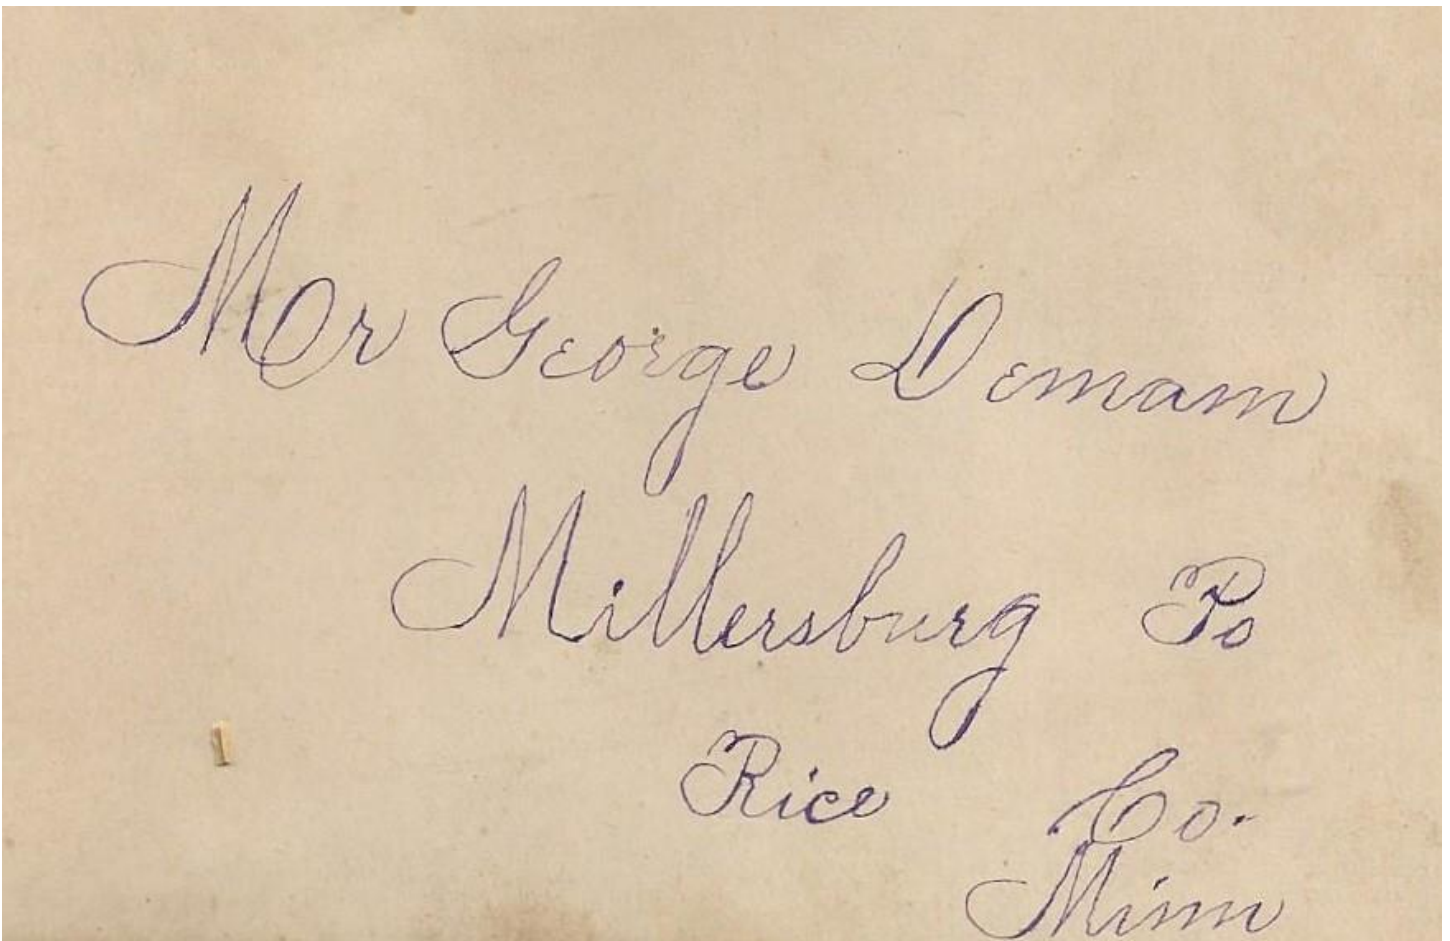 Mr George Demann
Millersburg Po
Rice Co.
Minn